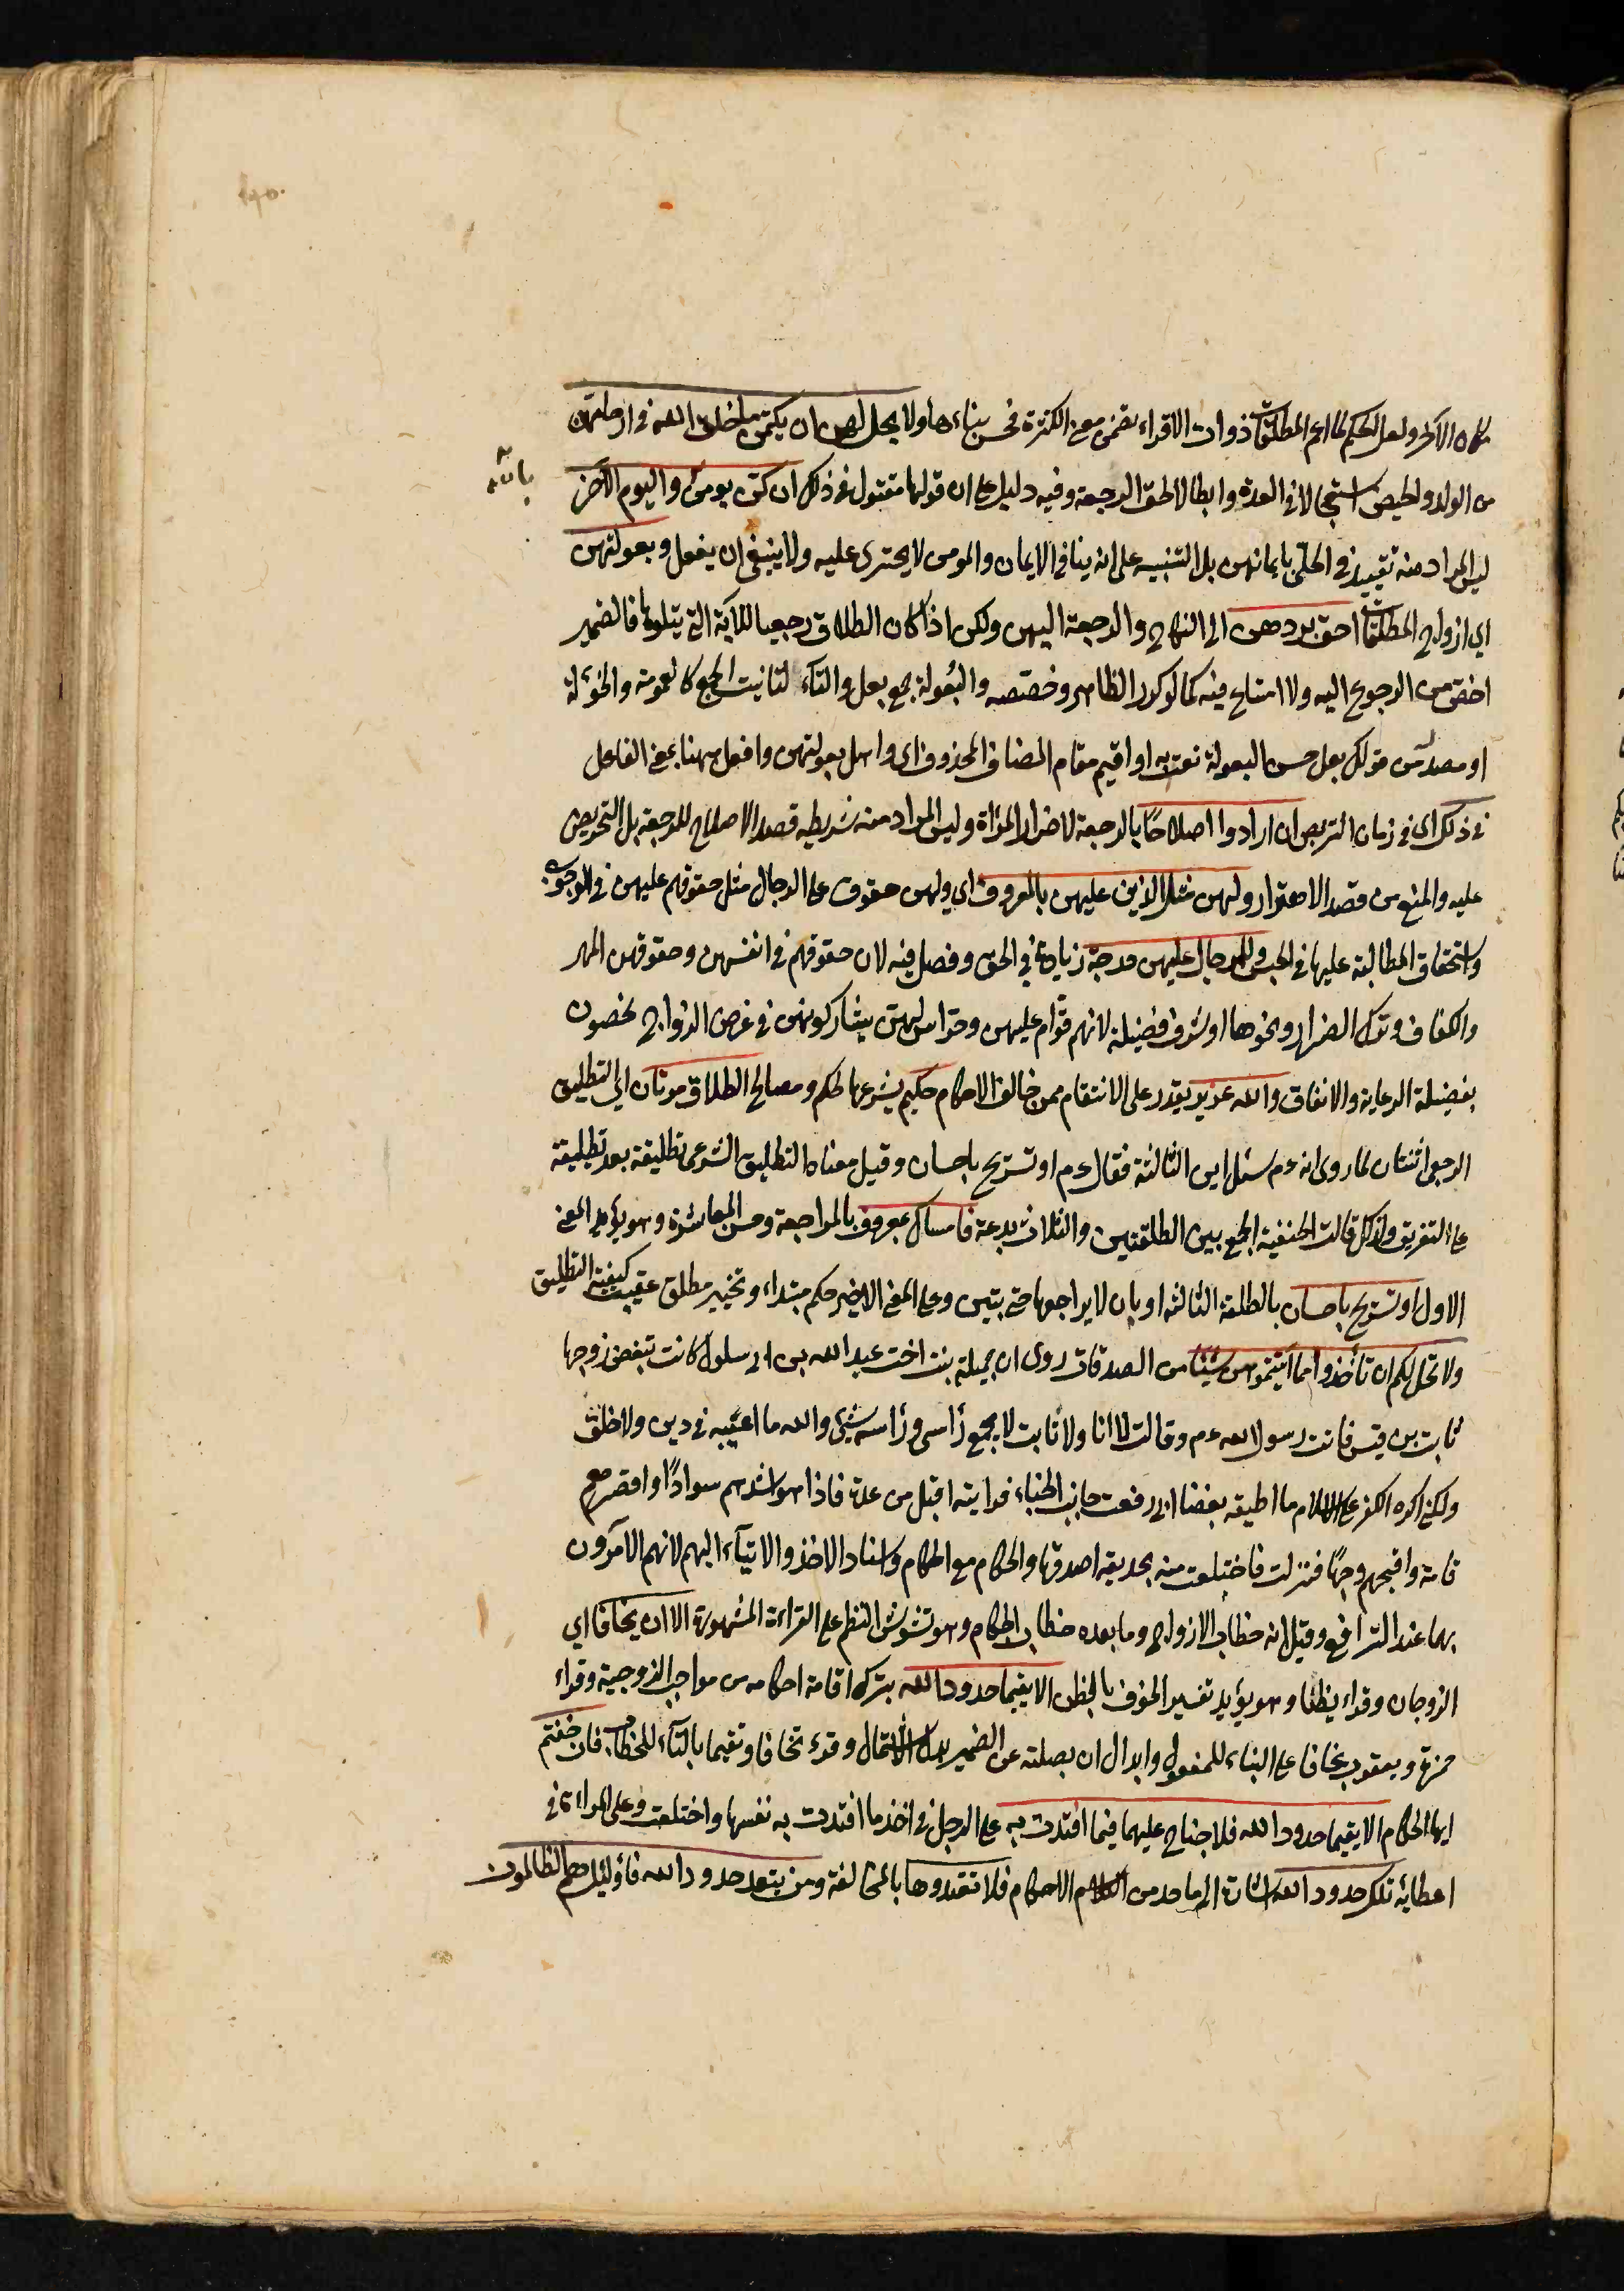 مكان الآخر ولعل الحكم لما عم المطلقات ذوات الاقراء تضمن معنى الكثرة فحسن بناءها ولا يحل لهن ان يكتمن ما خلق الله في ارحامهن
من الولد والحيض استعجالا في العدة وابطالا لحق الرجعة وفيه دليل على ان قولها مقبول في ذلك ان كن يؤمن واليوم الآخر
بالله
ليس المراد منه تقييد نفي الحل بايمانهن بل التنبيه على انه ينافي الايمان والمومن لا يجترئ عليه ولا ينبغي ان يفعل وبعولتهن
اي ازواج المطلقات احق بردهن الى النكاح والرجعة اليهن ولكن اذا كان الطلاق رجعيا للآية التي يتلوها فالضمير
اخص من الرجوع اليه ولا امتناع فيه كما لو كرر الظاهر وخصصه والبعولة جمع بعل والتاء لتانيث الجمع كالعمومة والخؤلة
او مصدر من قولك بعل حسن البعولة نعت به او اقيم مقام المضاف المحذوف اي واهل بعولتهن وافعل ههنا بمعنى الفاعل
في ذلك اي في زمان التربص ان ارادوا اصلاحًا بالرجعة لا ضرار المرأة وليس المراد منه شريطة قصد الاصلاح للرجعة بل التحريض
عليه والمنع من قصد الاضرار ولهن مثل الذي عليهن بالمعروف اي ولهن حقوق على الرجال مثل حقوقهم عليهن في الوجوب
واستحقاق المطالبة عليها لا في الجنس وللرجال عليهن درجة زيادة في الحق وفضل فيه لان حقوقهم في انفسهن وحقوقهن المهر
والكفاف وترك الضرار ونحوها او شرف وفضيلة لانهم قوام عليهن وحراس لهن يشاركونهن في غرض الزواج ويخصون
بفضيلة الرعاية والانفاق والله عزيز يقدر على الانتقام ممن خالف الاحكام حكيم يشرعها لحكم ومصالح الطلاق مرتان اي التطليق
الرجعي اثنتان لما روى انه ءم سئل اين الثالثة فقال ءم او تسريح باحسان وقيل معناه التطليق الشرعي تطليقة بعد تطليقة
على التفريق ولذلك قالت الحنفية الجمع بين الطلقتين والثلاث بدعة فامساك بمعروف بالمراجعة وحسن المعاشرة وهو يؤيد المعنى
الاول او تسريح باحسان بالطلقة الثالثة او بان لا يراجعها حتى تبين وعلى المعنى الاخير حكم مبتداء وتخيير مطلق عقيب كيفية التطليق
ولا تحل لكم ان تأخذوا مما آتيتموهن شيئا من الصدقات روى ان جميلة بنت اخت عبد الله بن ابي سلول كانت تبغض زوجها
ثابت بن قيس فاتت رسول الله ءم وقالت لا انا ولا ثابت لا يجمع رأسي ورأسه شيئ والله ما اعيبه في دين ولا خلق
ولكني اكره الكفر في الاسلام ما اطيقه بغضا اني رفعت جانب الخباء فرايته اقبل من عدة فاذا هو اشدهم سوادًا واقصرهم
قامة واقبحهم وجهًا فنزلت فاختلعت منه بحديقة اصدقها والحكام مع الحكام واسناد الاخذ والايتاء اليهم لانهم الآمرون
بهما عند الترافع وقيل انه خطاب الازواج وما بعده خطاب الحكام وهو تشوش النظم على القراءة المشهورة الا ان يخافا اي
الزوجان وقراء يظنا وهو يؤيد تفسير الخوف بالظن الا يقيما حدود الله بترك اقامة احكامه من مواجب الزوجية وقراء
حمزة ويعقوب يخافا على البناء للمفعول وابدال ان بصلته عن الضمير بدل الاشتمال وقرء تخافا وتقيما بالتاء للخطاب فان خفتم
ايها الحكام الا يقيما حدود الله فلا جناح عليهما فيما افتدت به على الرجل في اخذ ما افتدت به نفسها واختلعت وعلى المراءة في
اعطائه تلك حدود الله اشارة الى ما حد من الاحكام فلا تعتدوها بالمخالفة ومن يتعد حدود الله فاولئك هم الظالمون